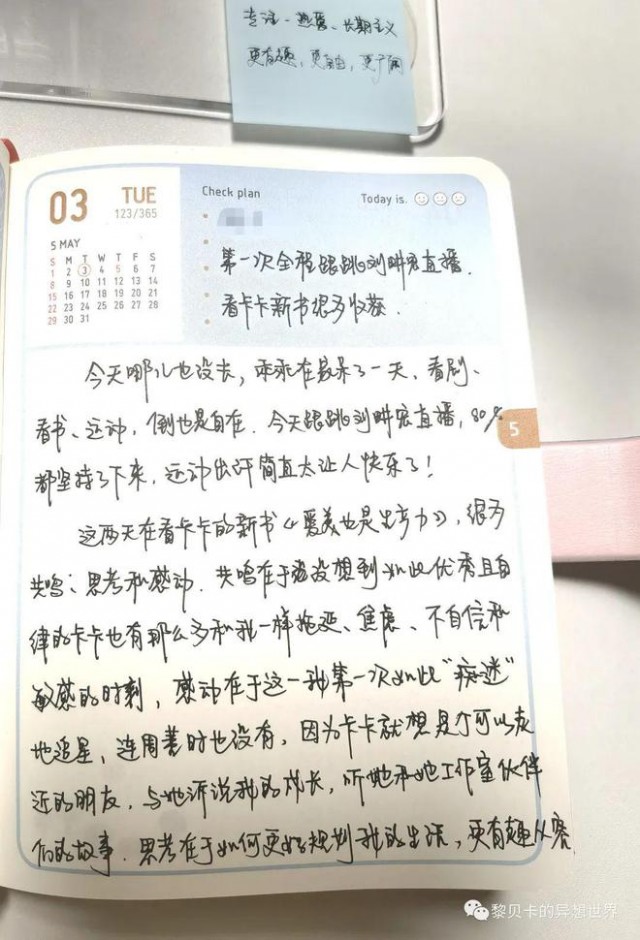 专注、热爱、长期主义
更有趣，更自由，更
03 TUE
123/365
Check plan
Today is.
5 MAY
S M T W T F S
1 2 3 4 5 6 7
8 9 10 11 12 13 14
15 16 17 18 19 20 21
22 23 24 25 26 27 28
29 30 31
第一次全程跟跳刘畊宏直播.
看卡卡新书很多收获.
今天哪儿也没去，乖乖在家呆了一天、看剧、
看书、运动，倒也是自在. 今天跟跳刘畊宏直播，80%
都坚持了下来，运动出汗简直太让人快乐了！
5
这两天在看卡卡的新书《爱美也是生产力》，很多
共鸣、思考和感动. 共鸣在于没想到如此优秀且自
律的卡卡也有那么多和我一样拖延、焦虑、不自信和
敏感的时刻，感动在于这一种第一次如此“痴迷”
地追星，连周善时也没有，因为卡卡就想是个可以走
近的朋友，与她诉说我的成长，听她和她工作室伙伴
们的故事. 思考在于如何更好规划我的生活，更有趣从容
黎贝卡的异想世界